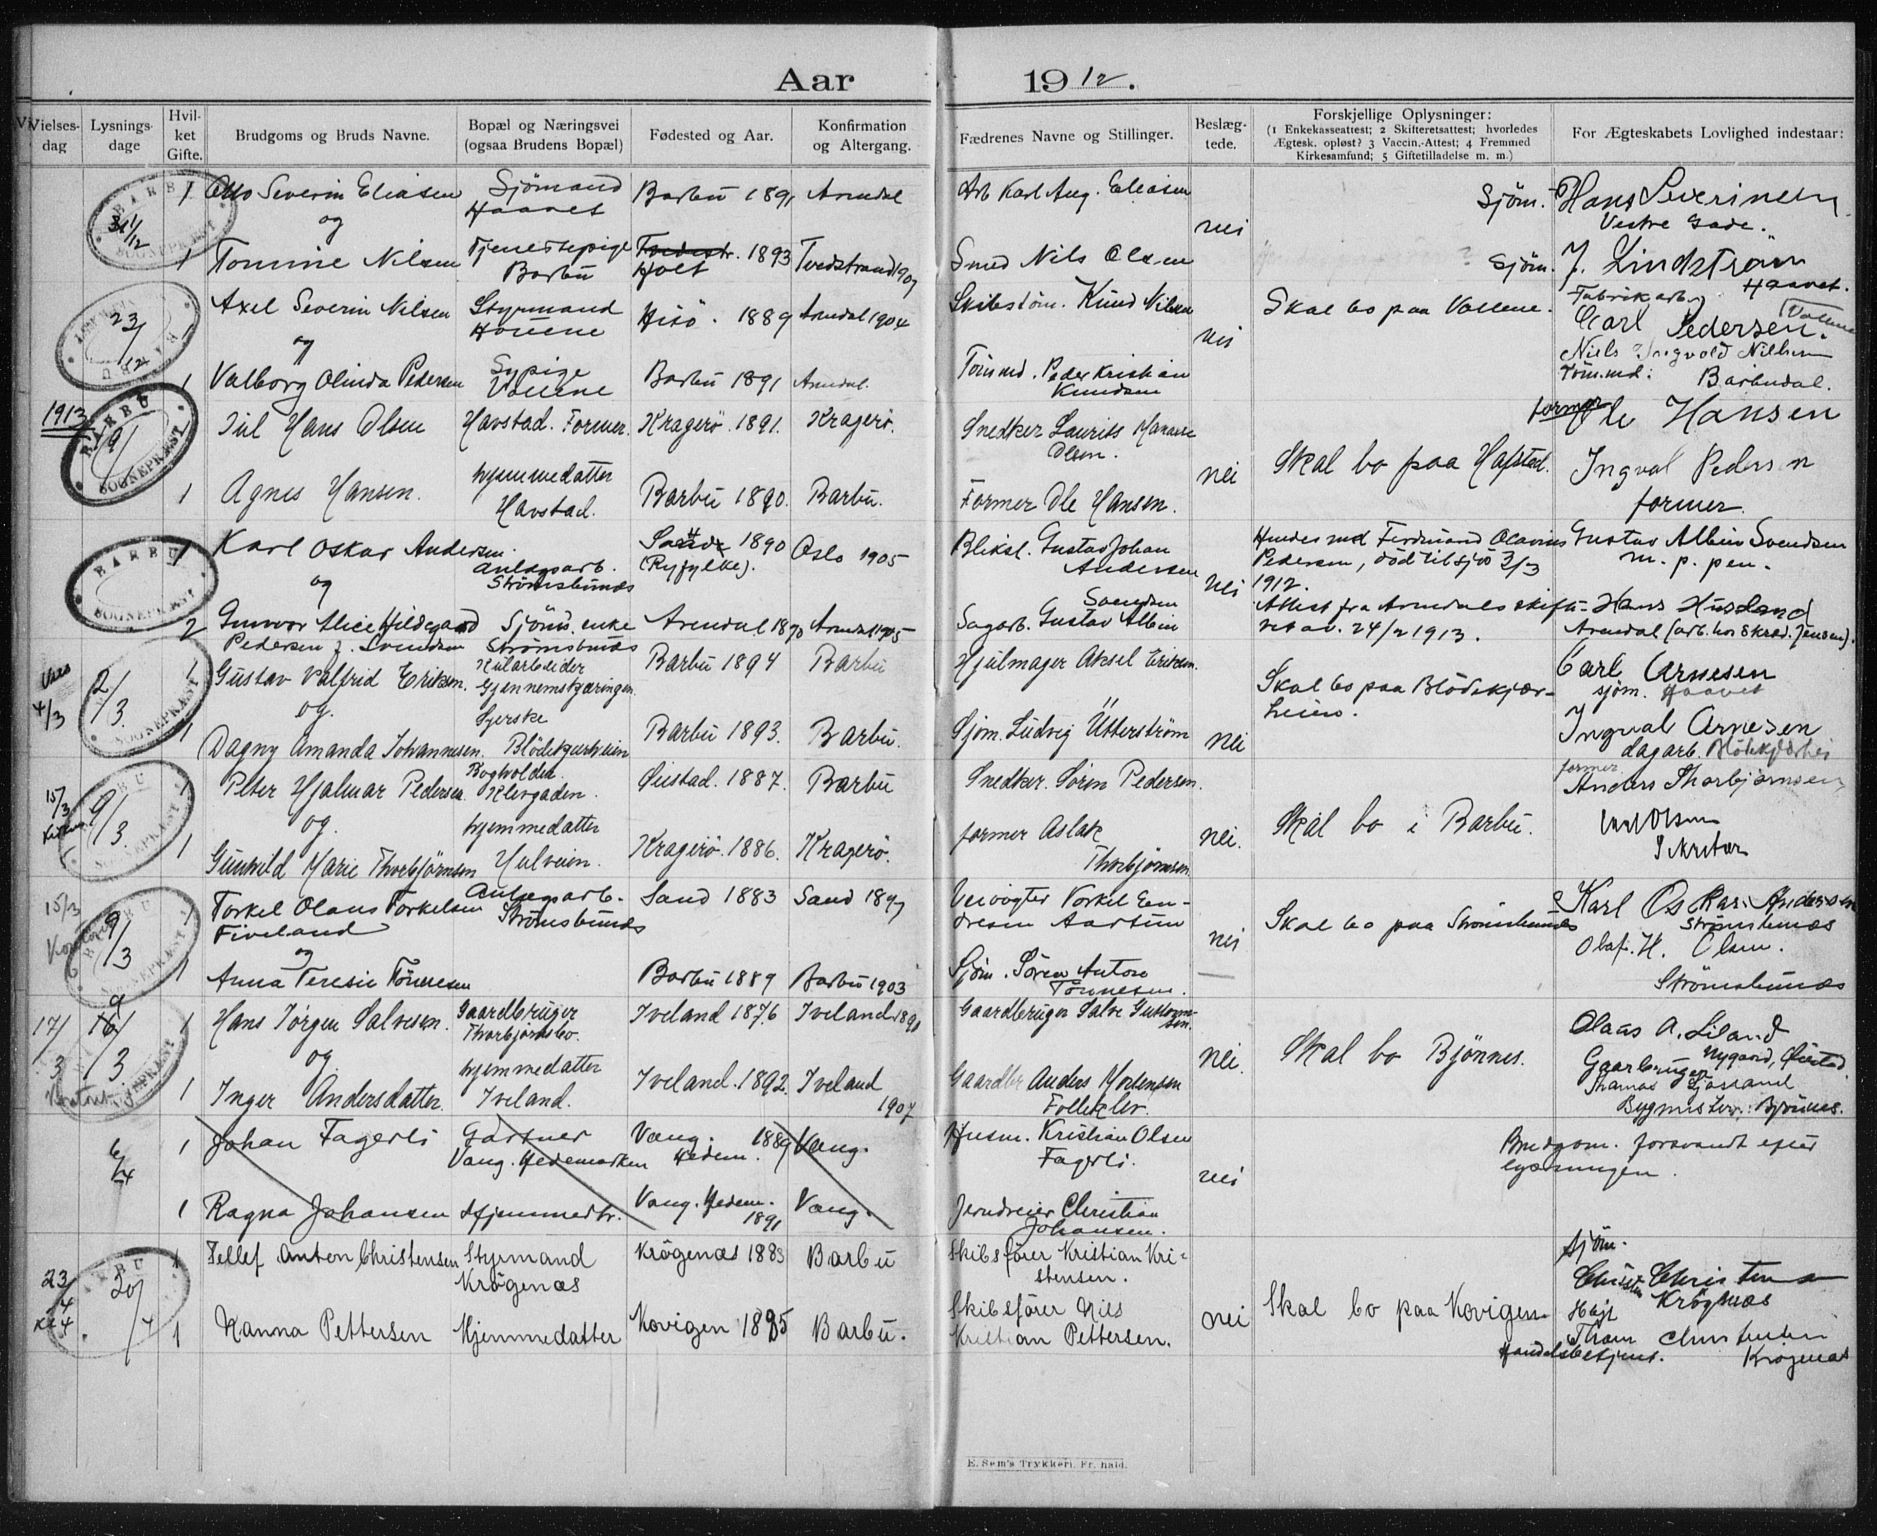 Aar 1912.
Vielsesdag
Lysningsdage
Hvilket Gifte.
Brudgoms og Bruds Navne.
Bopæl og Næringsvei
(ogsaa Brudens Bopæl)
Fødested og Aar.
Konfirmation
og Altergang.
Fædrenes Navne og Stillinger.
Beslægtede.
Forskjellige Oplysninger:
(1 Enkekasseattest; 2 Skifteretsattest; hvorledes
Ægtesk. opløst? 3 Vaccin.-Attest; 4 Fremmed
Kirkesamfund; 5 Giftetilladelse m. m.)
For Ægteskabets Lovlighed indestaar:
BARBU SOGNEPRÆST
1 Otto Severin Eliasen Sjömand Haavet Barbu 1891 Arendal Arb Karl Aug. Eliasen Sjöm. Hans Severinsen
og nei Vestre Gade.
1 Tomine Nilsen Tjenestepige Barbu Tvedestr. Holt 1893 Tvedstrand 1907 Smed Nils Olsen Sjöm. J. Lindstrøm Haavet.
23/12 Axel Severin Nilsen Styrmand Hisö. 1889 Arendal 1904 Skibstöm. Knud Nilsen Skal bo paa Vollene. Fabrikarb. Carl Pedersen. Vollene
og nei Niels Ingvold Nilsen
1 Valborg Olinda Pedersen Sypige Vollene Barbu 1891 Arendal. Tömmd. Peder Kristian Knudsen Tömmd: Barbudal.
1913
9/1 Jul Hans Olsen Havstad. Former. Kragerö. 1891. Kragerö. Snedker Laurits Olsen. former Ole Hansen
nei Skal bo paa Hafstad.
1 Agnes Hansen. hjemmedatter Havstad. Barbu 1890. Barbu. Former Ole Hansen. Ingval Pedersen former.
1 Karl Oskar Andersen. Anlægsarb. Strömsbunæs Sand (Ryfylke). 1890 Oslo 1905 Bliksl. Gustav Johan Andersen Hendes md Ferdinand Olavius Pedersen, död til sjös 3/3 1912. Gustav Albin Svendsen m. p. pen.
og nei
2 Gunvor Alice Hildegard Pedersen f. Svendsen Sjöm. enke Strömsbunæs Arendal 1890 Arendal 1905 Sagarb. Gustav Albin Svendsen Attest fra Arendals skifteret av 24/2 1913. Hans Husland Arendal (arb. hos Skræd. Jensen).
4/3 2/3 1 Gustav Valfrid Eriksen. Kularbeider Gjennemskjæringen Barbu 1894 Barbu Hjulmager Aksel Eriksen. Skal bo paa Blödekjærheien. Carl Arnesen sjöm. Haavet
og.
1 Dagny Amanda Johannesen. Syerske Blödekjærheien Barbu 1893. Barbu. Sjöm. Ludvig Ütterström nei Ingval Arnesen dagarb. Blödekjærhei
15/3 9/3 Peter Hjalmar Pedersen Bogholder. Kirkegaden. Öiestad. 1887. Barbu Snedker. Sören Pedersen. former Anders Thorbjørnsen
og. nei. Skal bo i Barbu. Carl Olsen
1 Gunhild Marie Thorbjörnsen hjemmedatter Hulveien. Kragerö. 1886. Kragerö. former Aslak Thorbjörnsen Sekretær
15/3 9/3 1 Torkel Olaus Torkelsen Fiveland Anlægsarb. Strömsbunæs Sand 1883 Sand 1897 Veivogter Torkel Endresen Aartun Skal bo paa Strömsbunæs Karl Oskar Andersen Strömsbunæs
og nei Olaf. H. Olsen.
1 Anna Teresie Tönnesen Barbu 1889 Barbu 1903 Sjöm. Sören Anton Tönnesen. Strömsbunæs
17/3 16/3 1 Hans Jörgen Salvesen. Gaardbruger Thorbjörnsbo. Iveland 1876 Iveland 1891 Gaardbruger Salve Guttormsen. Olaus A. Liland
og nei. Skal bo Bjönnes. Gaarbruger Nygaard, Öiestad
1 Inger Andersdatter. hjemmedatter Iveland. Iveland. 1892. Iveland 1907 Gaardbr Anders Mortensen Thomas Bygmester. Bjönnes.
6/4 1 Johan Fagerli Gartner Vang. Hedemarken Vang. Hedem. 1889 Vang. Husm. Kristian Olsen Fagerli. Brudgom. forsvandt efter lysningen.
nei
1 Ragna Johansen Hjemmedtr. Vang. Hedem. 1891 Vang. Jerndreier Christian Johansen.
23/4 20/4 1 Tellef Anton Christensen Styrmand Krögenæs Krögenæs 1883 Barbu Skibsförer Kristian Kristensen. Sjöm. Christen Christensen Krögnæs
nei Skal bo paa Kovigen
1 Hanna Pettersen Hjemmedatter Kovigen 1885 Barbu. Skibsförer Nils Kristian Pettersen. Christensen Handelsbetjent. Krögenæs
E. Sem's Trykkeri. Fr. hald.